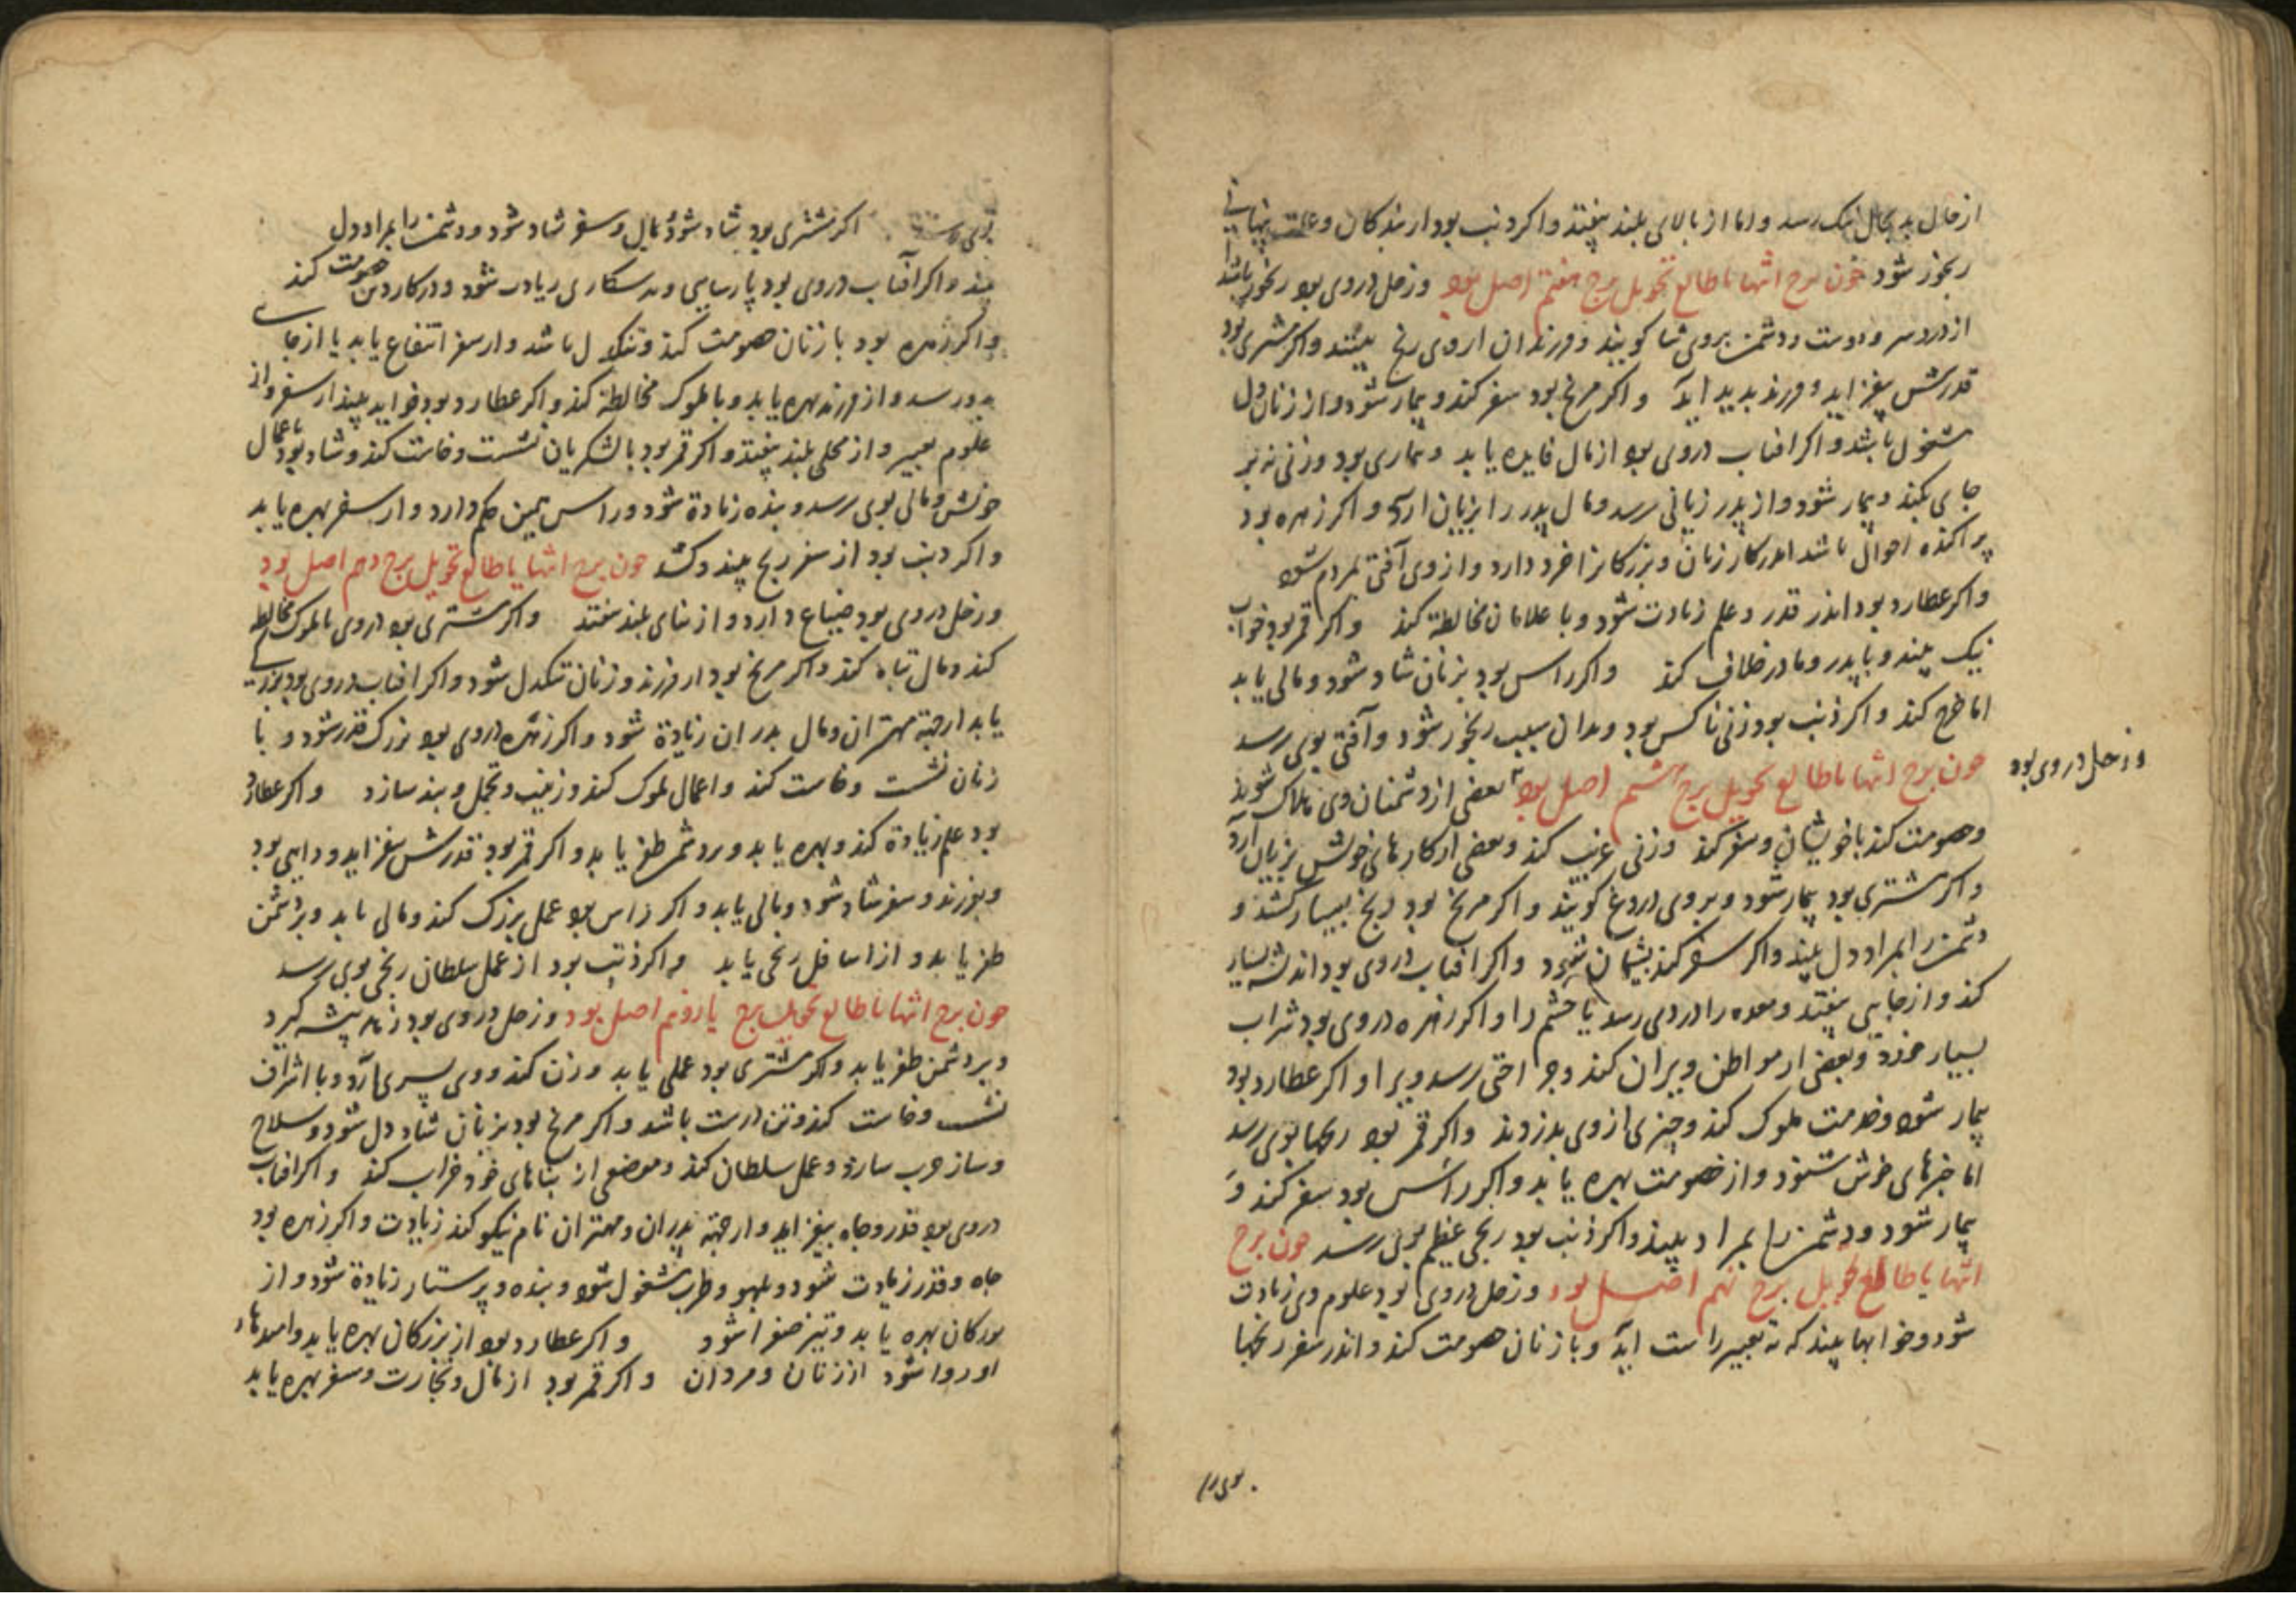 از حال بد بحال نیک رسد و اما از بالای بلند بیفتد و اکر ذنب بود از بندکان و علت پنهانی
رنجور شود چون برج انتها با طالع تحویل برج هفتم اصل بود و زحل در وی بود رنجور باشد
از درد سر و دوست و دشمن بروی ثنا کویند و فرزندان از وی رنج بینند و اکر مشتری بود
قدرش بیفزاید و فرزند بدید اید و اکر مریخ بود سفر کند و بیمار شود و از زنان دل
مشغول باشد و اکر افتاب در وی بود از مال فایده یابد و بیماری بود و زنی نه بر
جای بکند و بیمار شود و از پدر زیانی رسد و مال پدر را بزیان ارد و اکر زهره بود
پراکنده احوال باشد اندر کار زنان و بزرکانرا خرد دارد و از وی آفتی بمردم رسد
و اکر عطارد بود اندر قدر و علم زیادت شود و با غلامان مخالطة کند و اکر قمر بود خواب
نیک بیند و با پدر و مادر خلاف کند و اکر راس بود بزنان شاد شود و مالی یابد
اما خرج کند و اکر ذنب بود زنی ناکس بود و بدان سبب رنجور شود و آفتی بوی رسد
چون برج انتها با طالع تحویل برج هشتم اصل بود بعضی از دشمنان وی هلاک شوند
و زحل در وی بود
و خصومت کند با خویشان و سفر کند و زنی غریب کند و بعضی از کارهای خویش بزیان آرد
و اکر مشتری بود بیمار شود و بر وی دروغ کویند و اکر مریخ بود رنج بسیار کشد و
دشمن را بمراد دل بیند و اکر سفر کند پشیمان شود و اکر افتاب در وی بود اندیشه بسیار
کند و از جایی بیفتد و معده را دردی رسد یا چشم را و اکر زهره در وی بود شراب
بسیار خورد و بعضی از مواطن ویران کند و جراحتی رسد ویرا و اکر عطارد بود
بیمار شود و خدمت ملوک کند و چیزی از وی بدزدند و اکر قمر بود رنجها بوی رسد
اما خبرهای خوش شنود و از خصومت بهره یابد و اکر راس بود سفر کند و
بیمار شود و دشمن را بمراد بیند و اکر ذنب بود رنجی عظیم بوی رسد چون برج
انتها با طالع تحویل برج نهم اصل بود و زحل در وی بود علوم وی زیادت
شود و خوابها بیند که به تعبیر راست آید و با زنان خصومت کند و اندر سفر رنجها
بوی رسد اکر مشتری بود شاد شود بمال و سفر شاد شود و دشمن را بمراد دل
بیند و اکر آفتاب در وی بود پارسایی و پرهیزکاری زیادت شود و در کار دین خصومت کند
و اکر زهره بود با زنان خصومت کند و تنکدل باشد و از سفر انتفاع یابد یا از جایی
بدو رسد و از فرزند بهره یابد و با ملوک مخالطة کند و اکر عطارد بود فواید بیند از سفر و از
علوم تعبیر و از محلی بلند بیفتد و اکر قمر بود با لشکریان نشست و خاست کند و شاد بود باعمال
خویش و مالی بوی رسد و بنده زیادة شود و راس همین حکم دارد و از سفر بهره یابد
و اکر ذنب بود از سفر رنج بیند و کشد چون برج انتها با طالع تحویل برج دهم اصل بود
و زحل در وی بود ضیاع دارد و از بنای بلند بیفتد و اکر مشتری بود در وی با ملوک مخالطه
کند و مال تباه کند و اکر مریخ بود از فرزند و زنان تنکدل شود و اکر افتاب در وی بود بزرکی
یابد از جهة مهتران و مال پدران زیادة شود و اکر زهره در وی بود بزرک قدر شود و با
زنان نشست و خاست کند و اعمال ملوک کند و زینت و تجمل و بند سازد و اکر عطارد
بود علم زیادة کند و بهره یابد و بر دشمن ظفر یابد و اکر قمر بود قدرش بفزاید و داهی بود
و بفرزند و سفر شاد شود و مالی یابد و اکر راس بود عمل بزرک کند و مالی یابد و بر دشمن
ظفر یابد و از اسافل رنجی یابد و اکر ذنب بود از عمل سلطان رنجی بوی رسد
چون برج انتها با طالع تحویل برج یازدهم اصل بود و زحل در وی بود زنا پیشه کیرد
و بر دشمن ظفر یابد و اکر مشتری بود عملی یابد و زن کند و وی پسری آرد و با اشراف
نشست و خاست کند و تن درست باشد و اکر مریخ بود بزنان شاد دل شود و سلاح
و ساز حرب سازد و عمل سلطان کند و موضعی از بناهای خود خراب کند و اکر افتاب
در وی بود قدر و جاه بیفزاید و از جهة پدران و مهتران نام نیکو کند زیادت و اکر زهره بود
جاه و قدر زیادت شود و بلهو و طرب مشغول شود و بنده و پرستار زیادة شود و از
بزرکان بهره یابد و تیز صفرا شود و اکر عطارد بود از بزرکان بهره یابد و امیدهاء
او روا شود از زنان و مردان و اکر قمر بود از مال و تجارت و سفر بهره یابد